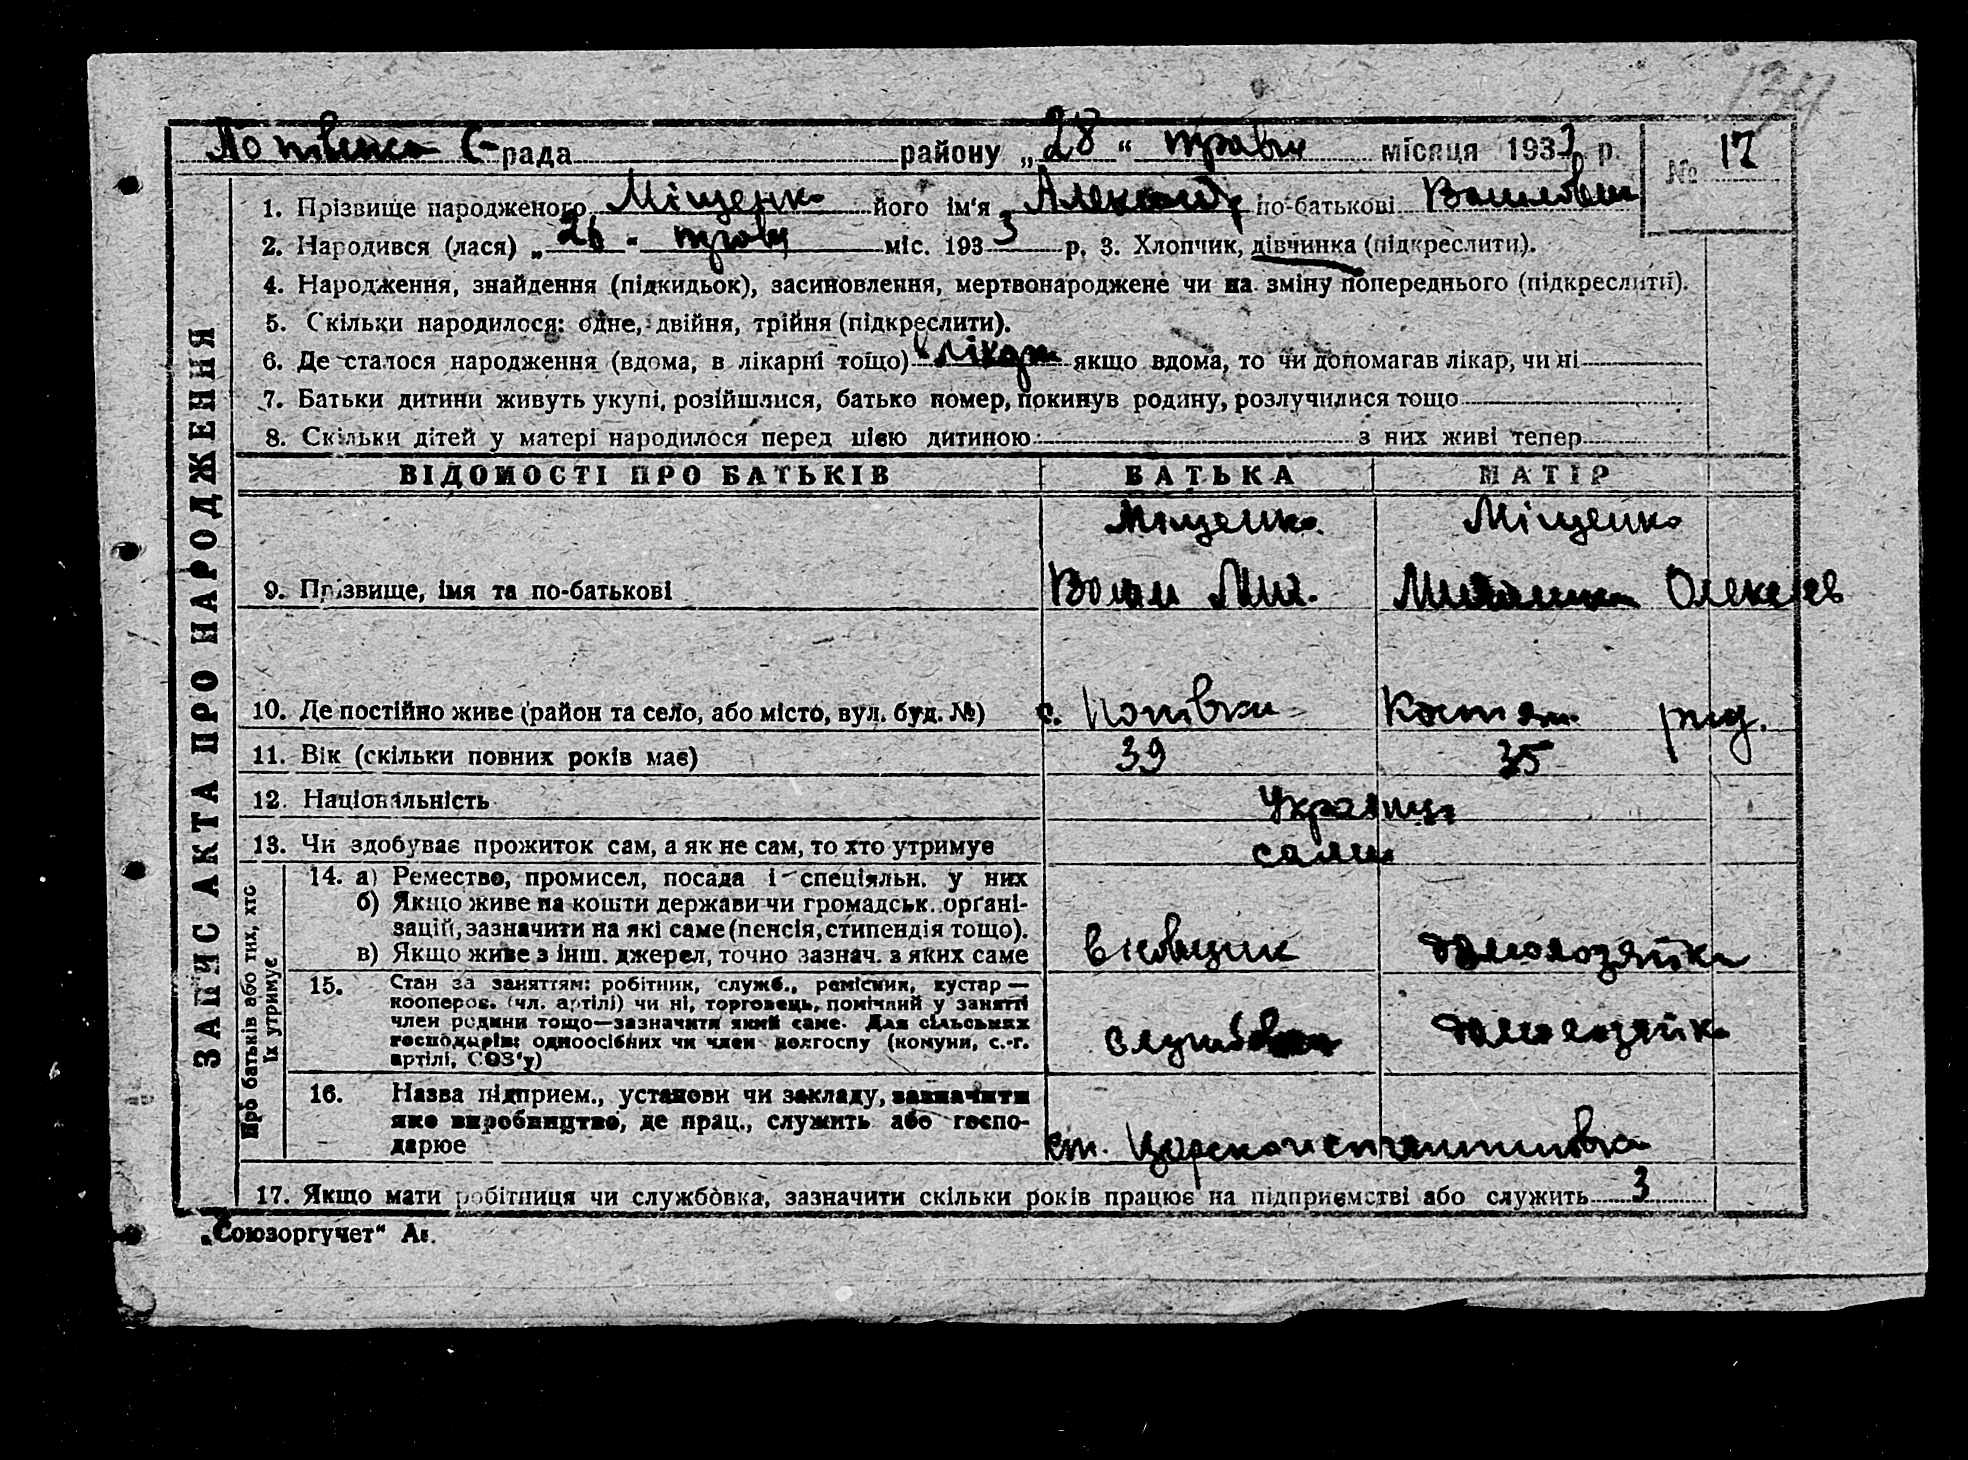 134
Попівська С-рада района „28“ травня місяця 1933 р. № 17
1. Прізвище народженого Міщенко його ім'я Александр по-батькові
2. Народився (лася) „26“ травн міс. 1933 р, 3. Хлопчик, дівчинка (підкреслити).
4. Народження, знайдення (підкидьок), засиновлення, мертвонароджене чи на зміну попереднього (підкреслити).
5. Скільки народилося: одне, двійня, трійня (підкреслити).
6. Де сталося народження (вдома, в лікарні тощо) якщо вдома, то чи допомагав лікар, чи ні
7. Батьки дитини живуть укупі, розійшлися, батько помер, покинув родину, розлучилися тощо
8. Скільки дітей у матері народилося перед цією дитиною з них живі тепер
ВІДОМОСТІ ПРО БАТЬКІВ БАТЬКА МАТІР
Міщенко Міщенко
9. Прізвище, імя та по-батькові Олексеев
10. Де постійно живе (район та село, або місто, вул. буд. №) с. Попівка
11. Вік (скільки повних років має) 39 35
12. Національність Украинц
13. Чи здобуває прожиток сам, а як не сам, то хто утримує сами
14. а) Ремество, промисел, посада і спеціяльн. у них
б) Якщо живе на кошти держави чи громадськ. організацій, зазначити на які саме (пенсія, стипендія тощо).
в) Якщо живе з інш. джерел, точно зазнач. з яких саме домохозяйка
15. Стан за заняттям: робітник, служб., ремісник, кустар—
кооперов. (чл. артілі) чи ні, торговець, помічний у занятті
член родини тощо—зазначити який саме. Для сільських
господарів: одноосібних чи член колгоспу (комуни, с.-г.
артілі, СОЗ'у) домохозяйка
16. Назва підприєм., установи чи закладу, зазначити
яке виробництво, де прац., служить або господарює
ст.
17. Якщо мати робітниця чи службовка, зазначити скільки років працює на підприємстві або служить 3
ЗАПИС АКТА ПРО НАРОДЖЕННЯ
Про батьків або тих, хто
їх утримує
„Союзоргучет“